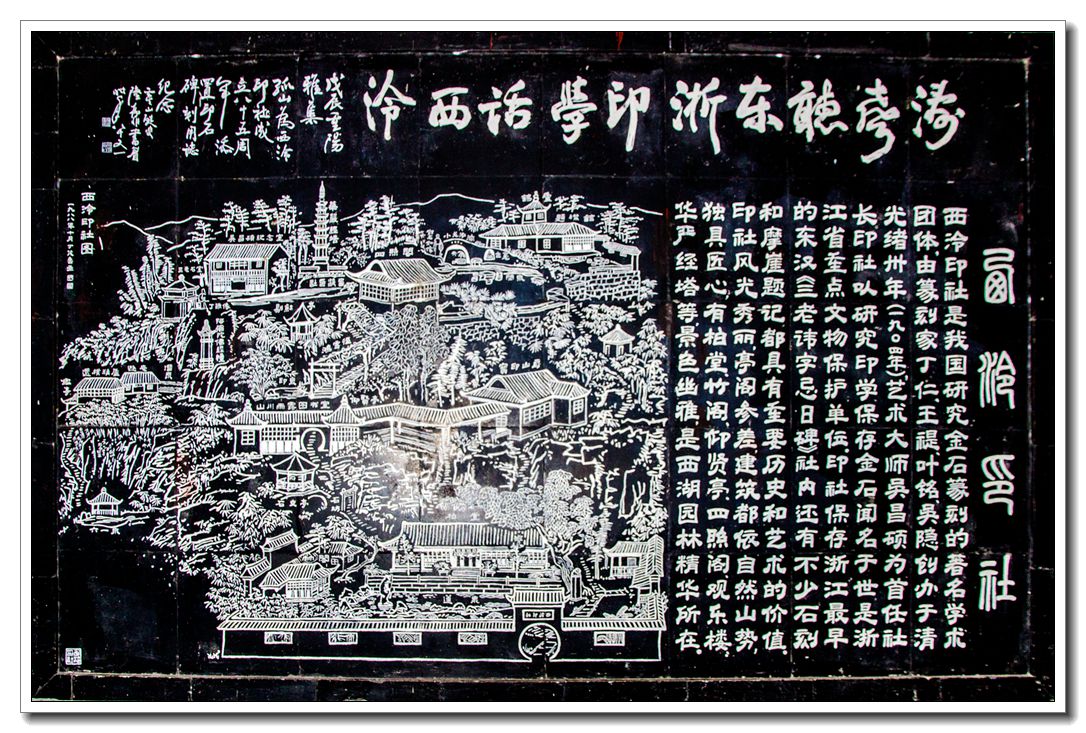 涛声聽东浙印學話西泠
戊辰重陽
雅集
孤山為西泠
印社成
立八十五周
年添
置此石
碑刻用誌
纪念
西泠印社
西泠印社是我国研究金石篆刻的著名学术
团体,由篆刻家丁仁王禔叶铭吴隐创办于清
光绪卅年(一九〇四年)艺术大师吴昌硕为首任社
长印社以研究印学保存金石闻名于世是浙
江省重点文物保护单位,印社保存浙江最早
的东汉《三老讳字忌日碑》社内还有不少石刻
和摩崖题记都具有重要历史和艺术的价值
印社风光秀丽亭阁参差建筑都依自然山势
独具匠心,有柏堂竹阁仰贤亭四照阁观乐楼
华严经塔等景色幽雅是西湖园林精华所在
西泠印社图
山川雨露图书室